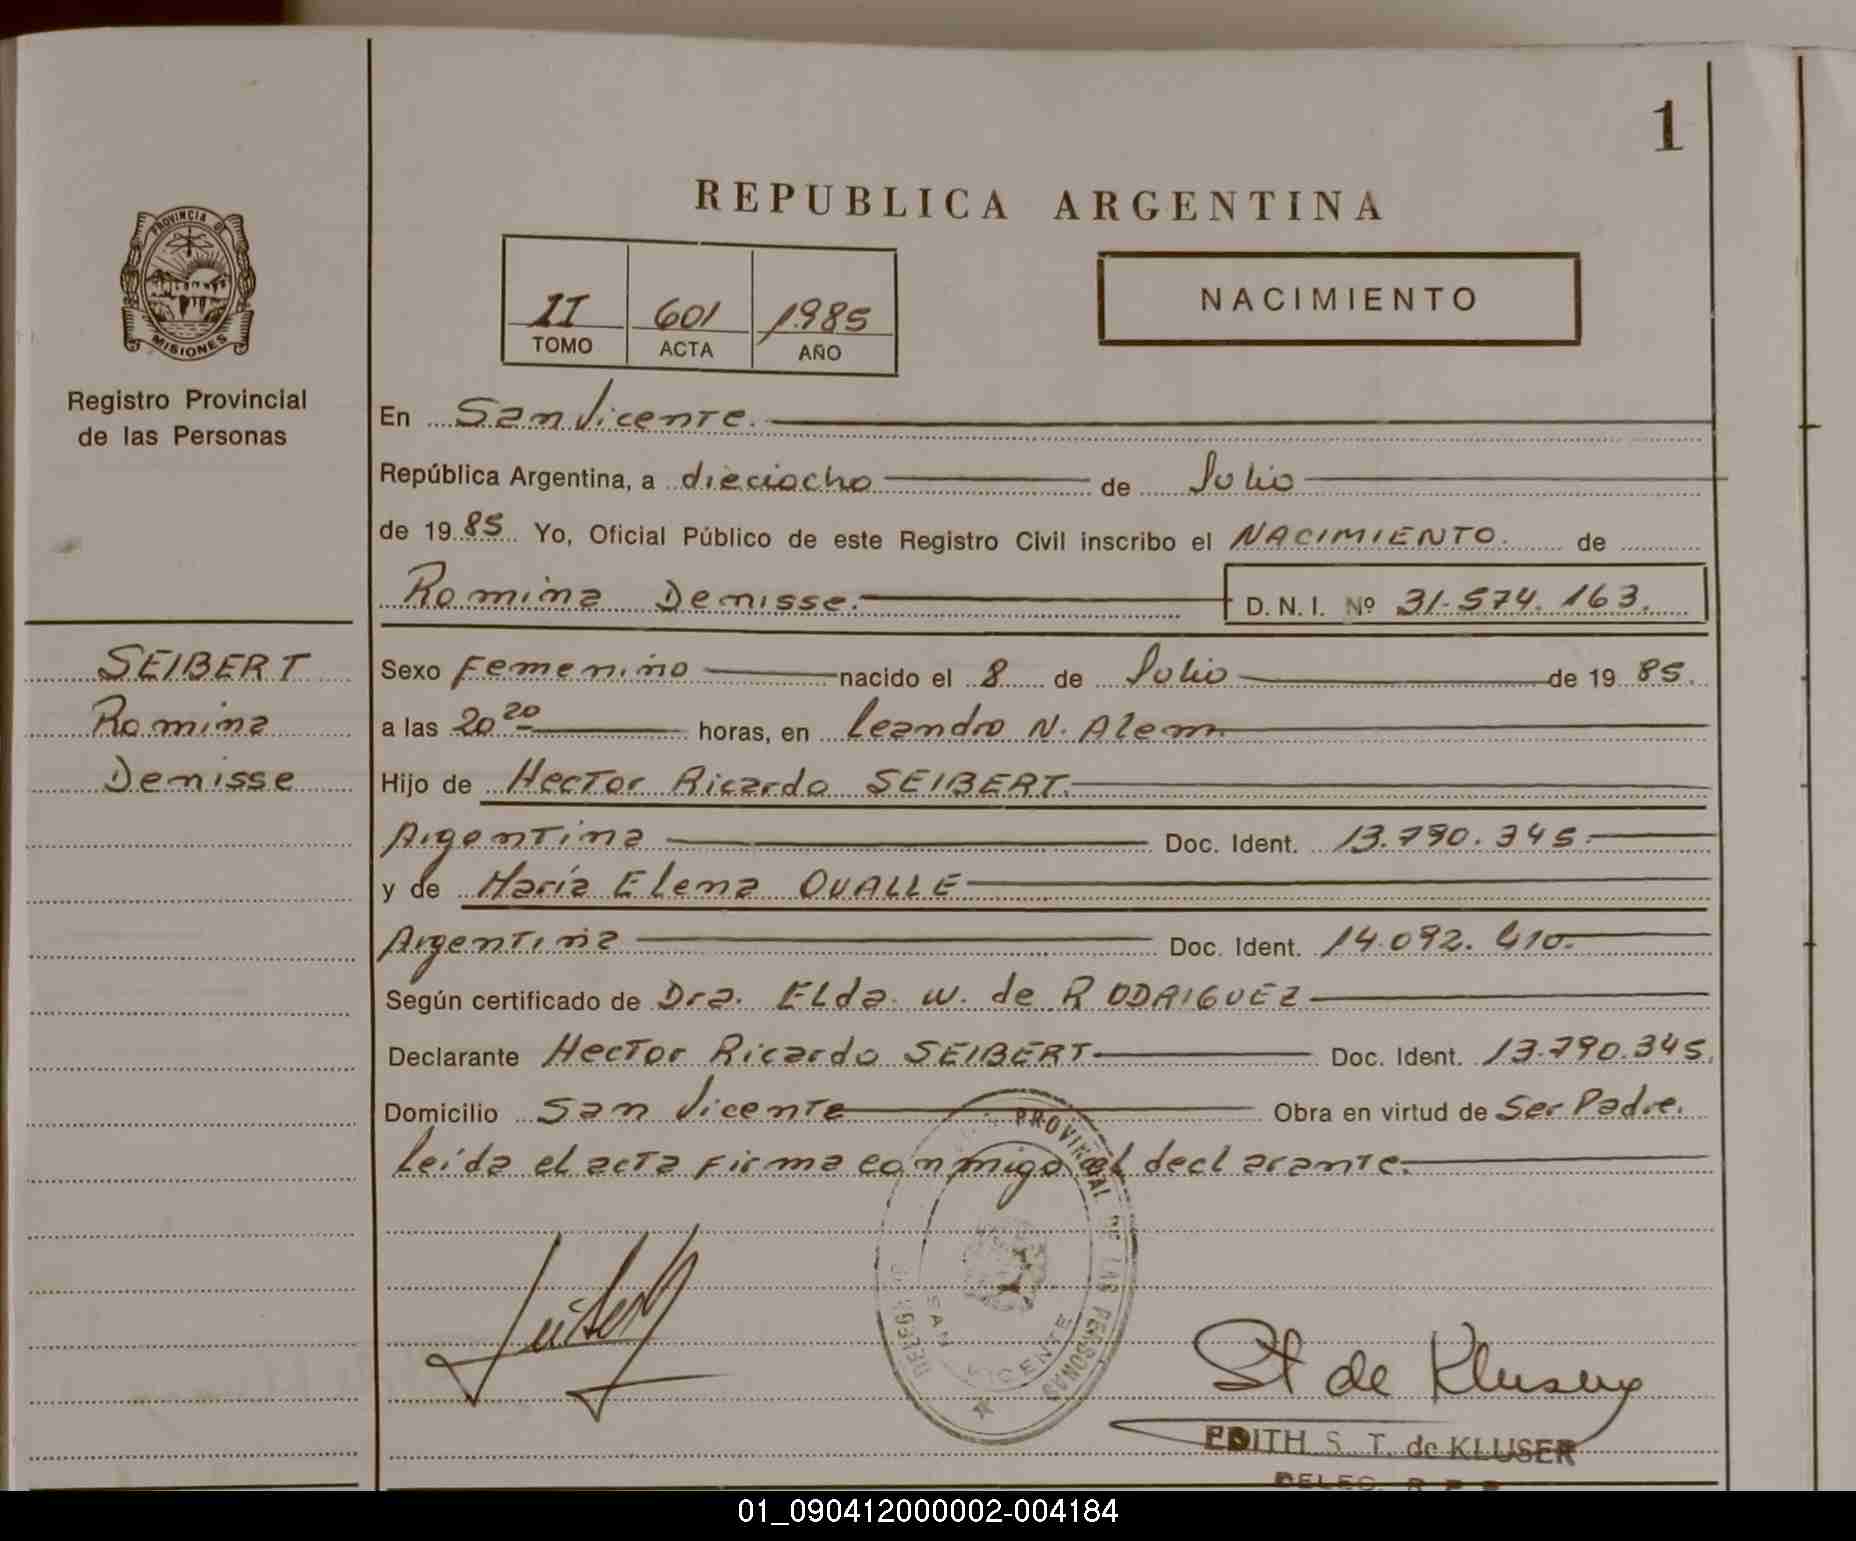 1
REPUBLICA ARGENTINA
PROVINCIA DE
MISIONES
Registro Provincial
de las Personas
II 601 1985
TOMO ACTA AÑO
NACIMIENTO
En San Vicente.
República Argentina, a dieciocho de Julio
de 1985 Yo, Oficial Público de este Registro Civil inscribo el NACIMIENTO. de
Romina Denisse. D. N. I. Nº 31.574.163.
SEIBERT
Romina
Denisse
Sexo Femenino nacido el 8 de Julio de 1985.
a las 20 20 horas, en Leandro N. Alem
Hijo de Hector Ricardo SEIBERT.
Argentina Doc. Ident. 13.790.345.
y de María Elena OVALLE
Argentina Doc. Ident. 14.092.410.
Según certificado de Dra. Elda W. de RODRIGUEZ
Declarante Hector Ricardo SEIBERT Doc. Ident. 13.790.345.
Domicilio San Vicente Obra en virtud de Ser Padre.
Leída el acta firma conmigo el declarante.
PROVINCIAL DE LAS PERSONAS
SAN VICENTE
St de Kluser
EDITH S. T. de KLUSER
DELEG. R. P. P.
01_090412000002-004184